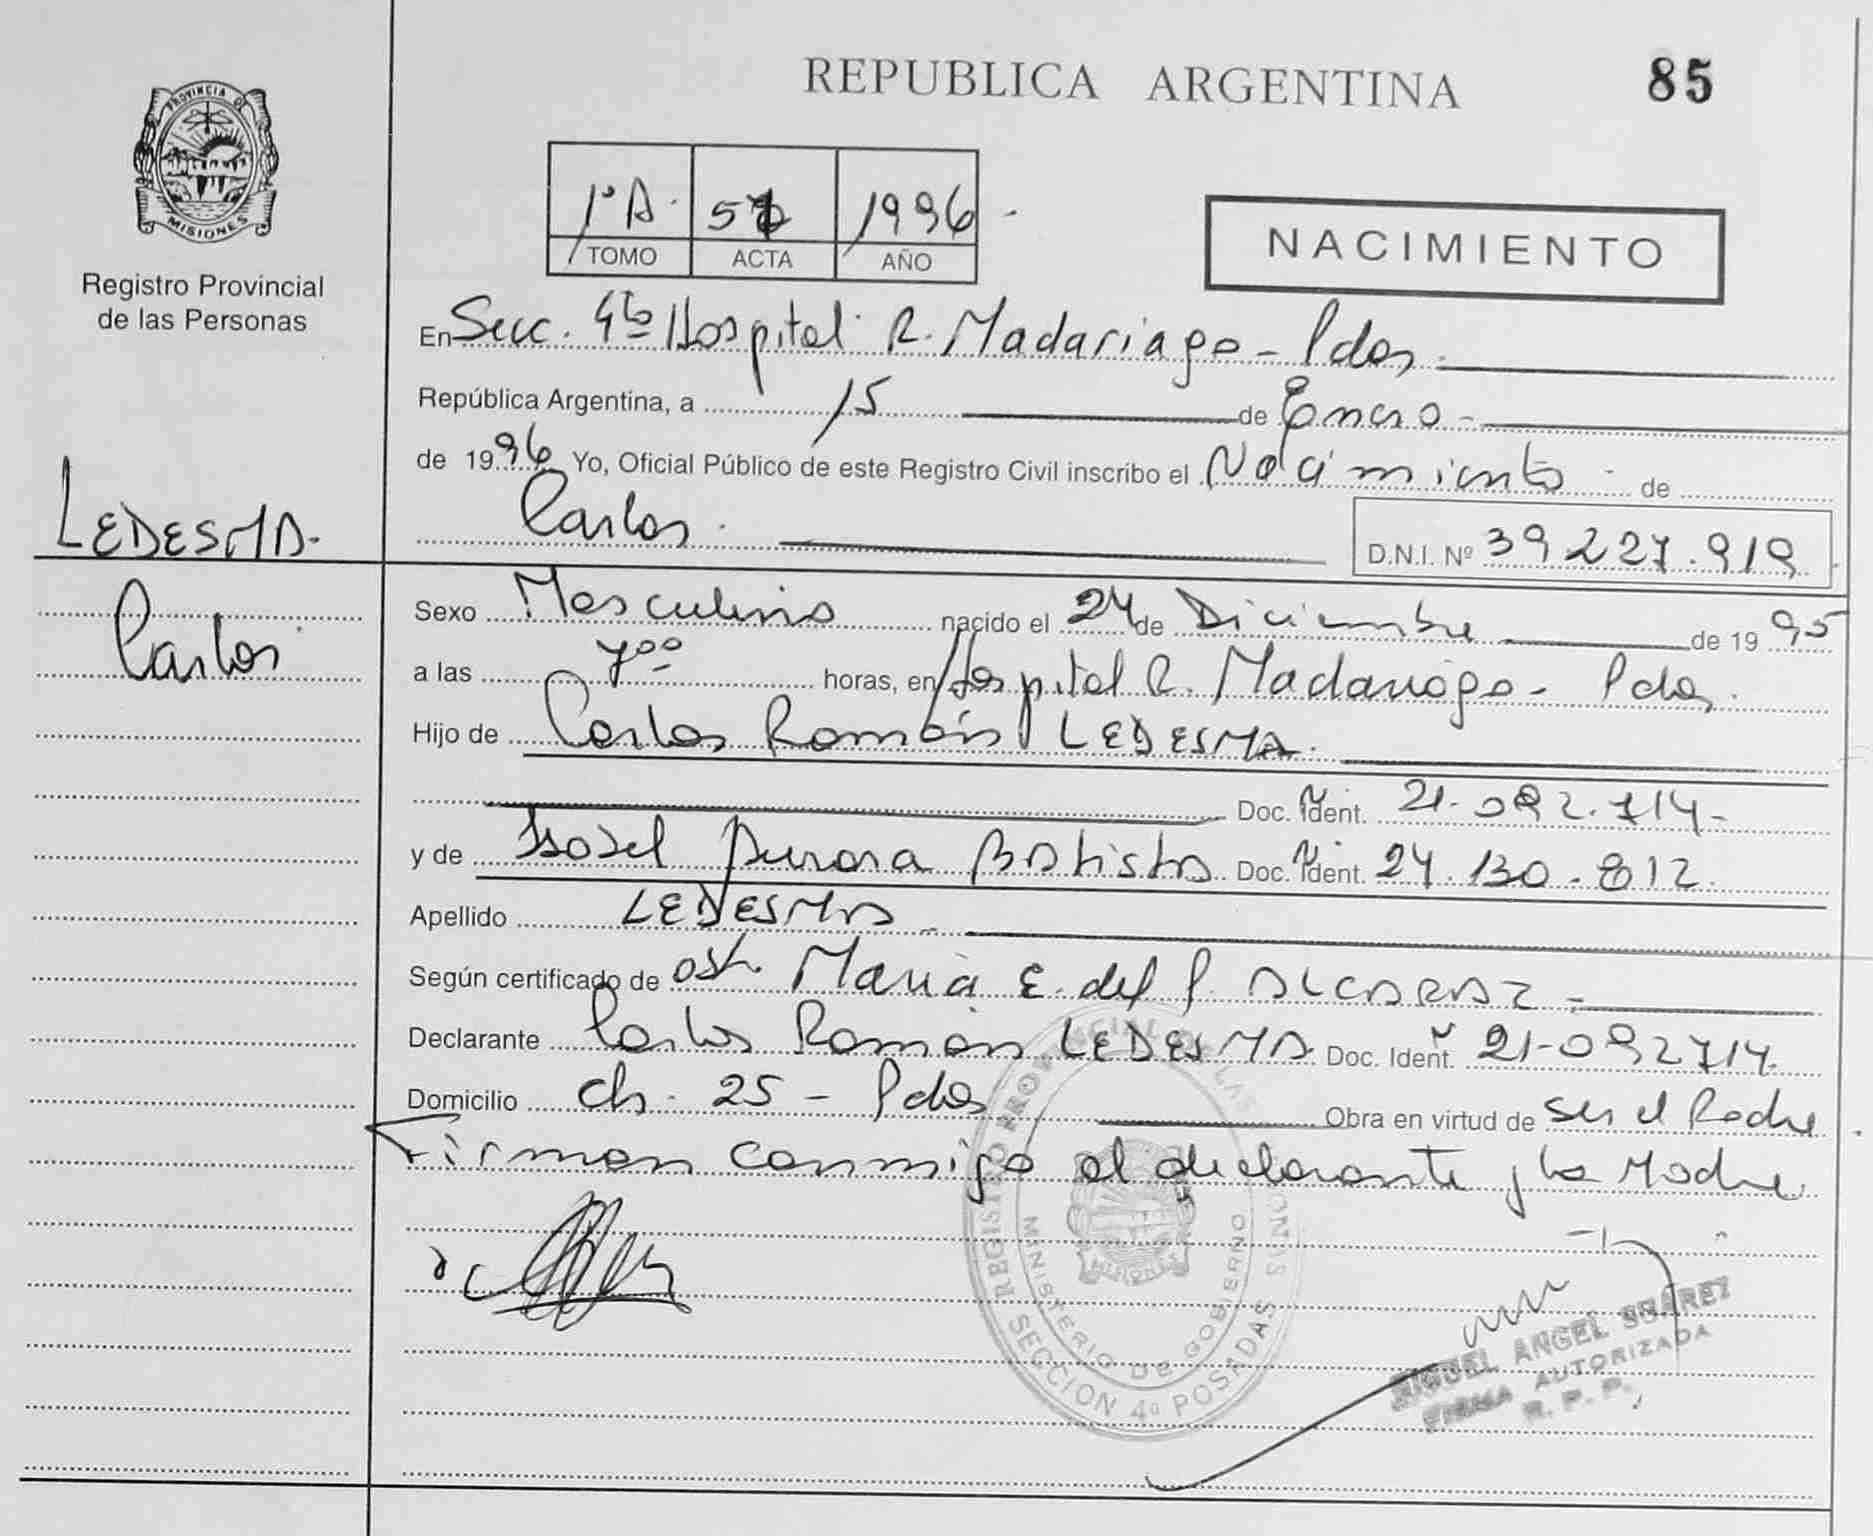 REPUBLICA ARGENTINA
85
PROVINCIA DE
MISIONES
Registro Provincial
de las Personas
1º A. 1996
TOMO ACTA AÑO
NACIMIENTO
En Secc. 4ta Hospital R. Madariaga - Pdas.
República Argentina, a 15 de Enero -
de 1996 Yo, Oficial Público de este Registro Civil inscribo el Nacimiento de
Carlos.
D.N.I. Nº 39.227.919
LEDESMA.
Carlos
Sexo Masculino nacido el 24 de Diciembre de 1995
a las 7oo horas, en Hospital R. Madariaga - Pdas.
Hijo de Carlos Ramón LEDESMA.
Doc. Ident. 21.092.714-
y de Isabel Aurora Batista Doc. Ident. 24.130.812.
Apellido LEDESMA
Según certificado de obst. Maria E. del P. ALCARAZ -
Declarante Carlos Ramón LEDESMA Doc. Ident. 21.092714.
Domicilio ch. 25 - Pdas Obra en virtud de ser el Padre.
Firman conmigo el declarante y la Madre
REGISTRO PROVINCIAL DE LAS PERSONAS
MINISTERIO DE GOBIERNO
MISIONES
SECCION 4º POSADAS
MIGUEL ANGEL SUAREZ
FIRMA AUTORIZADA
R. P. P.